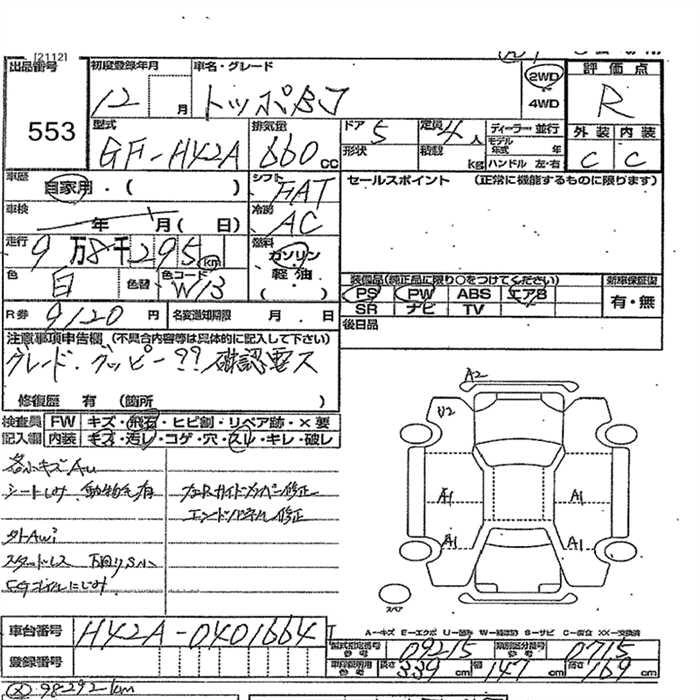 [2112]
出品番号 553
初度登録年月 12 月
車名・グレード トッポBJ
2WD
4WD
評価点 R
型式 GF-H42A
排気量 660 cc
ドア 5 定員 4 人
形状 積載 kg
ディーラー・並行
モデル年式 年
ハンドル 左・右
外装 内装
C C
車歴 自家用・( )
シフト FAT
セールスポイント (正常に機能するものに限ります)
車検 年 月( 日)
冷房 AC
走行 9万8千295 km
燃料 ガソリン
軽油
( )
色 白 色替 色コード W13
装備品(純正品に限り○をつけてください)
新車保証書
PS PW ABS エアB
SR ナビ TV
有・無
R券 9120 円 名変通知期限 月 日
後日品
注意事項申告欄 (不具合内容等は具体的に記入して下さい)
グレード・グッピー?? 確認要ス
修復歴 有 (箇所 )
検査員記入欄
FW キズ・飛石・ヒビ割・リペア跡・×要
内装 キズ・汚レ・コゲ・穴・スレ・キレ・破レ
各小キズAu
シートしみ 動物毛有
エンドパネル修正
スタッドレス
A2
U2
A1 A1
A1 A1
スペア
A-キズ E-エクボ U-凹み W-補修跡 S-サビ C-腐食 XX-交換済
車台番号 H42A-0401664
型式指定番号 参考 09215 類別区分番号 参考 0715
登録番号
車両説明用 参考 長さ 339 cm 幅 147 cm 高さ 169 cm
98292km